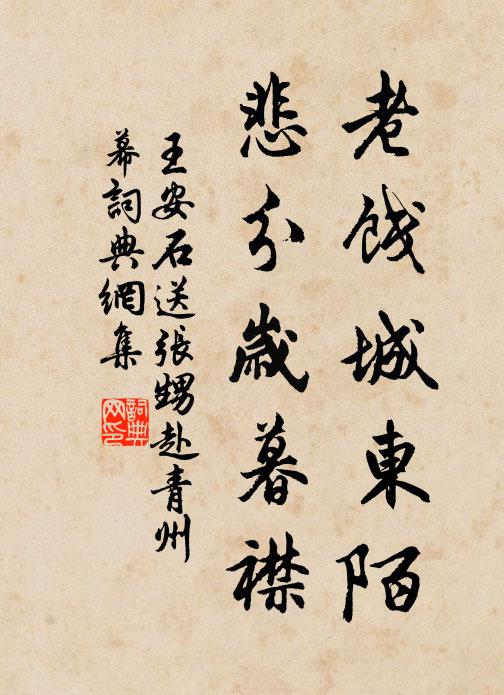 老餞城東陌
悲分歲暮襟
王安石送張甥赴青州
幕詞典網集
詞典
网印